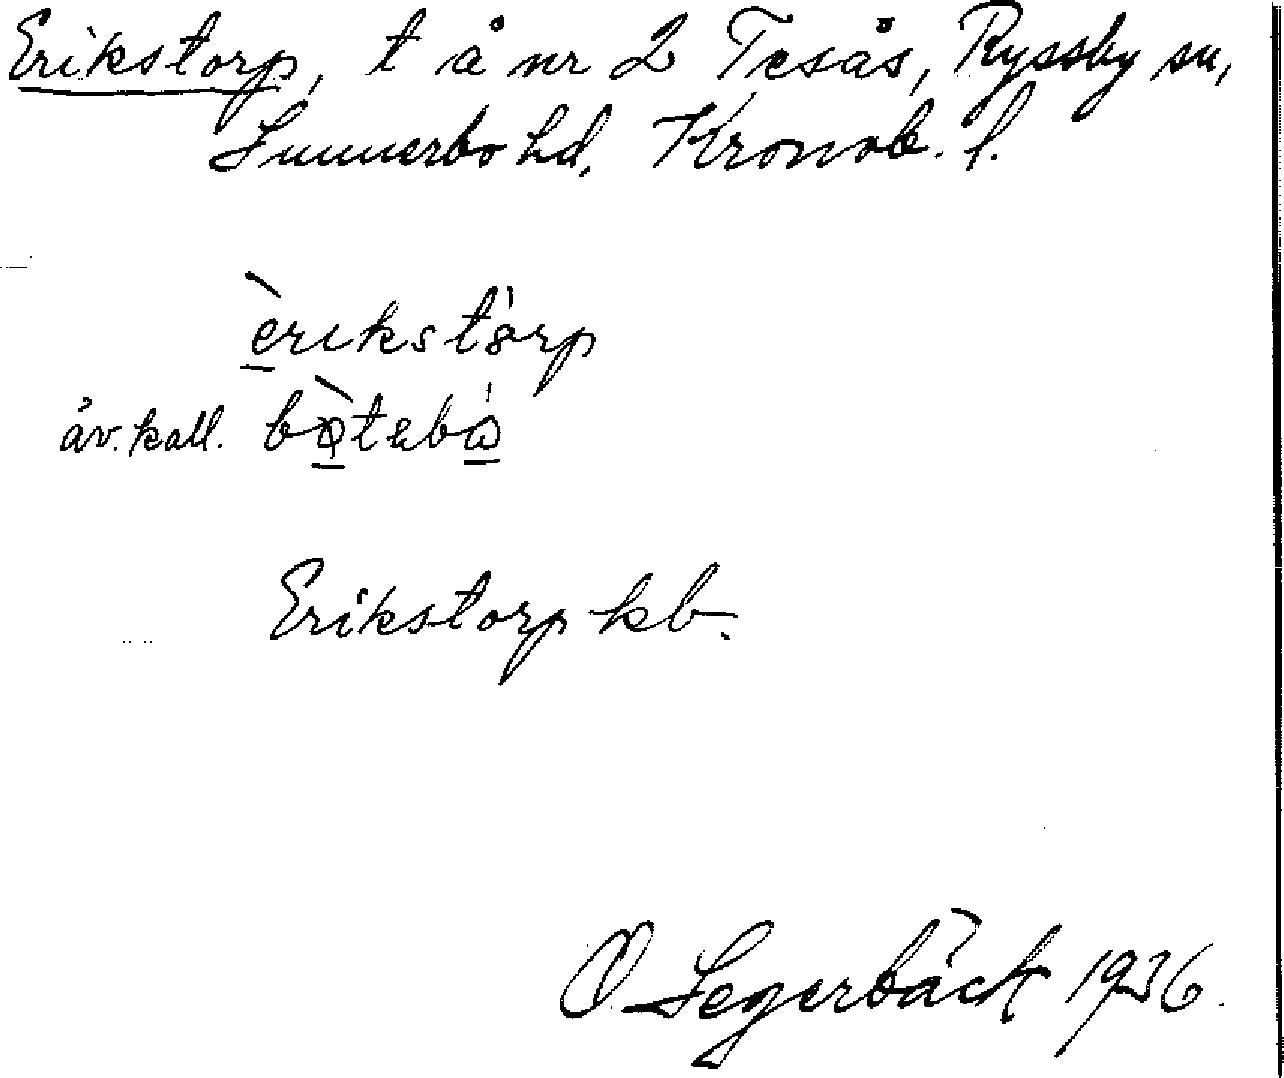 Erikstorp, t å nr 2 Tesås, Ryssby sn,
Sunnerbo hd, Kronob. l.
èrikstórp
äv. kall.
Erikstorp kb.
O Segerbäck 1936.